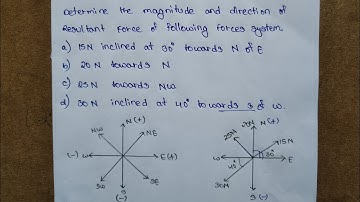 Determine the magnitude and direction of
Resultant force of following forces system
a) 15N inclined at 30° towards N of E
b) 20N towards N
c) 25N towards NW
d) 30N inclined at 40° towards S of W.
N (+)
NW
NE
(-) W
E (+)
SW
SE
S
(-)
N (+)
20N
25N
15N
30°
W
E
40°
30N
S (-)